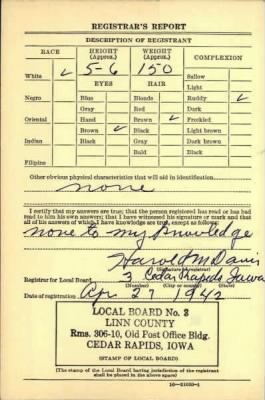 REGISTRAR'S REPORT
DESCRIPTION OF REGISTRANT
RACE HEIGHT (Approx.) WEIGHT (Approx.) COMPLEXION
5-6 150
White ✓ Sallow
EYES HAIR Light
Negro Blue Blonde Ruddy ✓
Gray Red Dark
Oriental Hazel Brown ✓ Freckled
Brown ✓ Black Light brown
Indian Black Gray Dark brown
Bald Black
Filipino
Other obvious physical characteristics that will aid in identification
none
I certify that my answers are true; that the person registered has read or has had
read to him his own answers; that I have witnessed his signature or mark and that
all of his answers of which I have knowledge are true, except as follows:
none to my knowledge
Harold M Davis
(Signature of registrar)
Registrar for Local Board 3 Cedar Rapids Iowa
(Number) (City or county) (State)
Date of registration Apr 27 1942
LOCAL BOARD No. 3
LINN COUNTY
Rms. 306-10, Old Post Office Bldg.
CEDAR RAPIDS, IOWA
(STAMP OF LOCAL BOARD)
(The stamp of the Local Board having jurisdiction of the registrant
shall be placed in the above space)